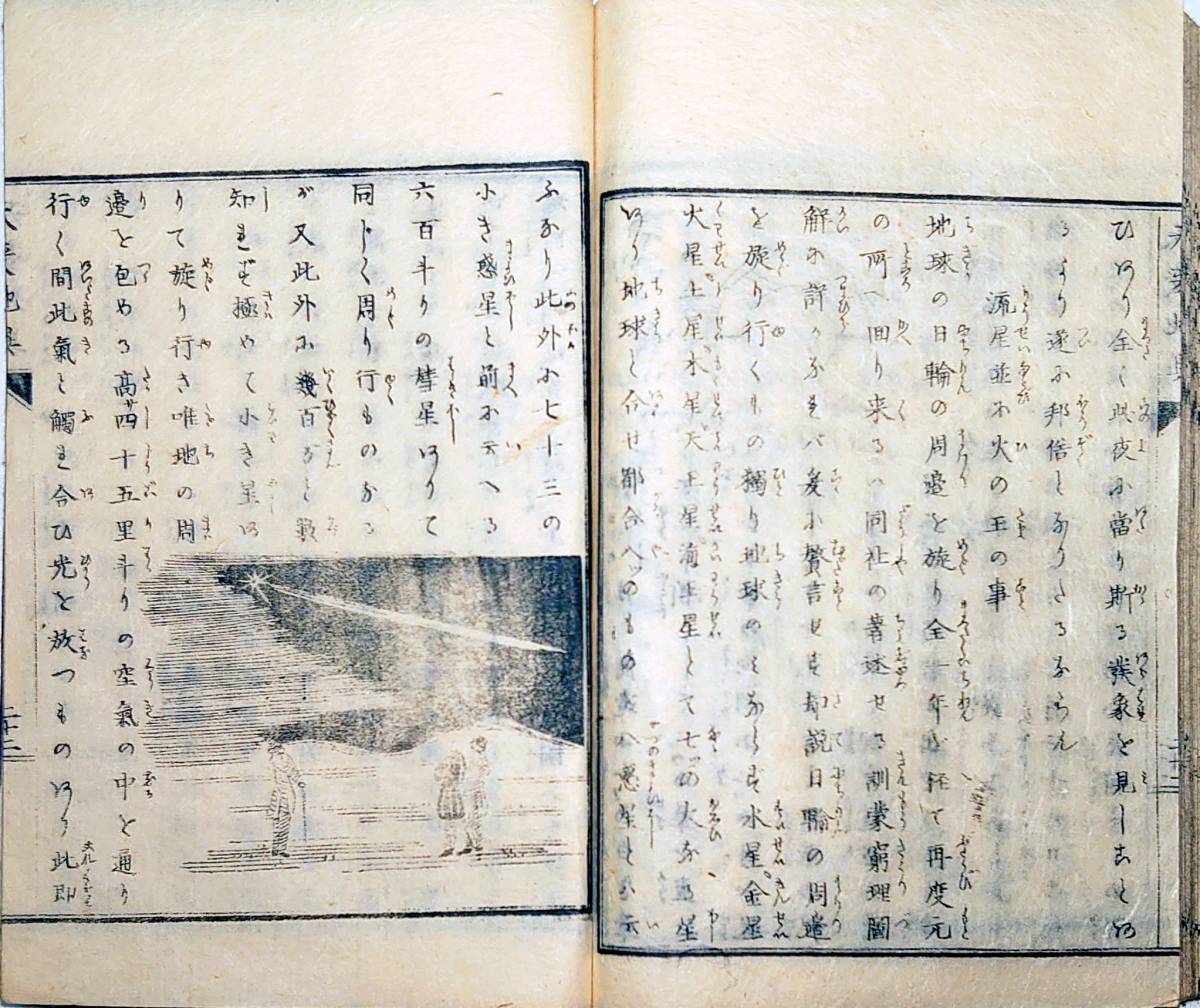 ひあり全く此夜に當り斯る諜象を見しことあ
るより遂に邦俗となりたるならん
流星並に火の玉の事
地球の日輪の周邉を旋り全一年を経て再度元
の所へ回り来るハ同社の著述せる訓蒙窮理圖
解に詳かなれバ爰に贅言せず却説日輪の周邉
を旋り行くもの獨り地球のみならず水星金星
火星土星木星天王星海王星とて七ッの大なる星
あり地球と合せ都合八ッのものを八惑星とか云
ふなり此外に七十三の
小き惑星と前に云へる
六百斗りの彗星ありて
同じく周り行ものなる
が又此外に幾百なると数
知れず極めて小き星あ
りて旋り行き唯地の周
邉を包める高サ四十五里斗りの空氣の中を通り
行く間此氣と觸れ合ひ光を放つものあり此即